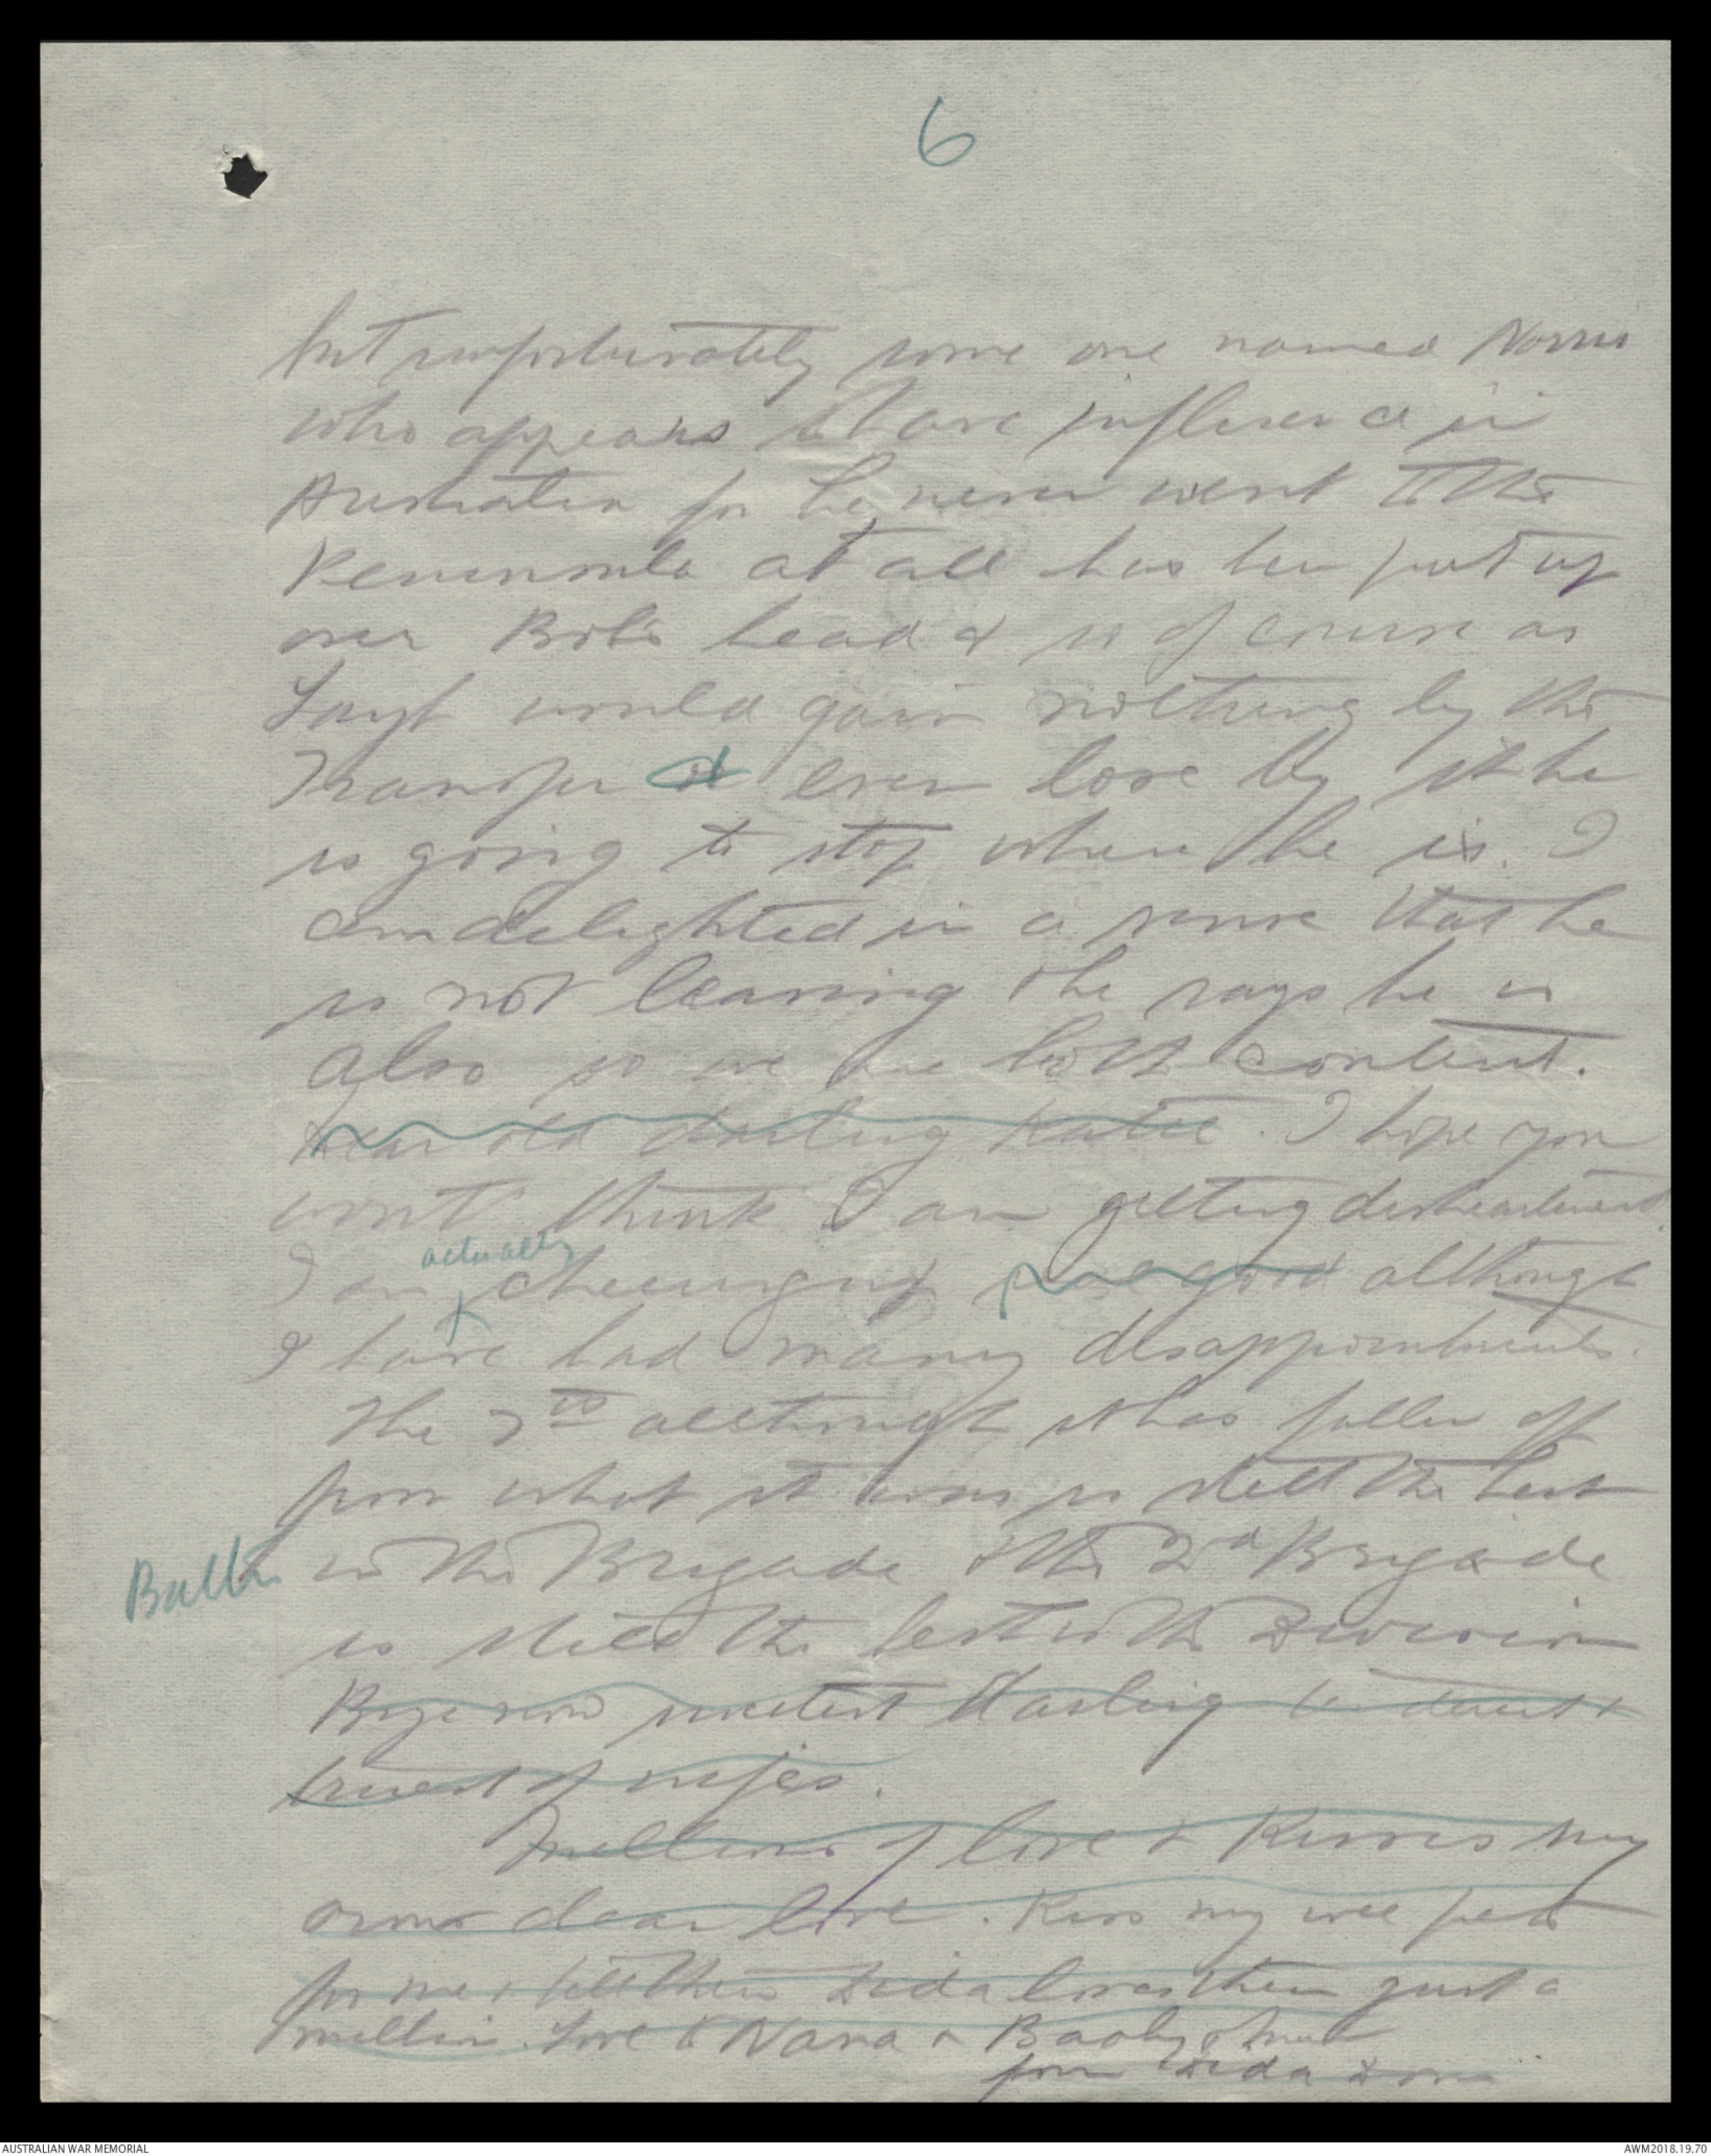 6
but unfortunately some one named Norris
who appears to have influence in
Australia for he never went to the
Peninsula at all has been put up
over Bob's head & so of course as
would gain nothing by the
transfer & even lose by it he
is going to stop where he is. I
am delighted in a sense that he
is not leaving & he says he is
also so we are both content.
Dear old darling Katie. I hope you
wont think I am getting disheartened.
actually
I am cheering up although
I have had many disappointments.
The 7th although it has fallen off
from what it was is still the best
Battn in the Brigade & the 2nd Brigade
is still the best in the Division
Bye now sweetest darling tenderest &
truest of wifies.
Millions of love & kisses my
own dear love. Kiss my wee pets
for me & tell them Dida loves them just a
million. Love to Nana & Baaby &
from Dida
AUSTRALIAN WAR MEMORIAL
AWM2018.19.70